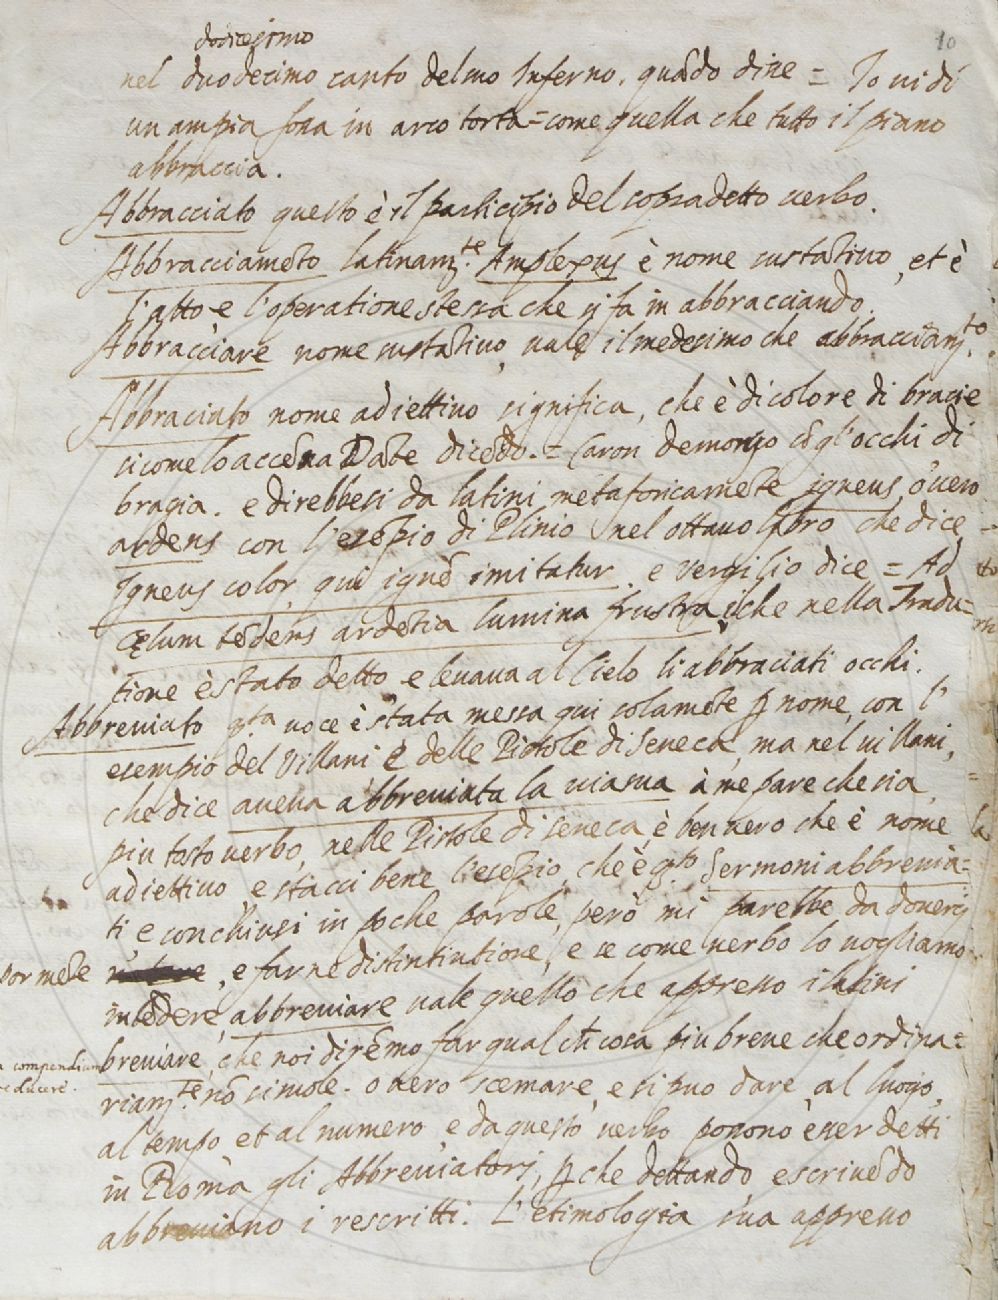 10
dodicesimo
nel duodecimo canto del suo Inferno, quãdo dice = Io vidi
un ampia fossa in arco torta = come quella che tutto il piano
abbraccia.
Abbracciato questo è il participio del sopradetto verbo.
Abbracciamẽto latinam.te Amplexus è nome sustãtivo, et è
l'atto e l'operatione stessa che si fa in abbracciando.
Abbracciare nome sustãtivo, vale il medesimo che abbracciam.to
Abbraciato nome adiettivo significa, che è di colore di bracie
si come lo accẽna Dãte dicẽdo = Caron demonio cõ gl'occhi di
bragia. e direbbesi da latini metaforicamẽte igneus, overo
ardens con l'esẽpio di Plinio nel ottavo libro che dice
Igneus color, qui ignẽ imitatur. e Vergilio dice = Ad
cęlum tẽdens ardẽtia lumina frustra, che nella Tradu-
tione è stato detto e levava al Cielo li abbraciati occhi.
Abbreviato q.ta voce è stata messa qui solamẽte p nome, con l'
esempio del Villani e delle Pistole di Seneca, ma nel Villani,
che dice aveva abbreviata la via sua à me pare che sia
piu tosto verbo, nelle Pistole di Seneca, è ben vero che è nome
adiettivo, e stacci bene l'esẽpio, che è q.to Sermoni abbrevia=
ti e conchiusi in poche parole, però mi parebbe da doversi
por mẽte, e farne distintintione, e se come verbo lo vogliamo
intẽdere, abbreviare vale quello che appresso i latini
breviare, che noi dirẽmo far qual ch cosa piu breve che ordina=
a compendium
reducere.
riam.te nõ si vole. o vero scemare, e si può dare, al luogo,
al tempo et al numero, e da questo verbo possono esser detti
in Roma gli Abbreviatori, p che dettando, e scrivẽdo
abbreviano i rescritti. L'etimologia sua appresso